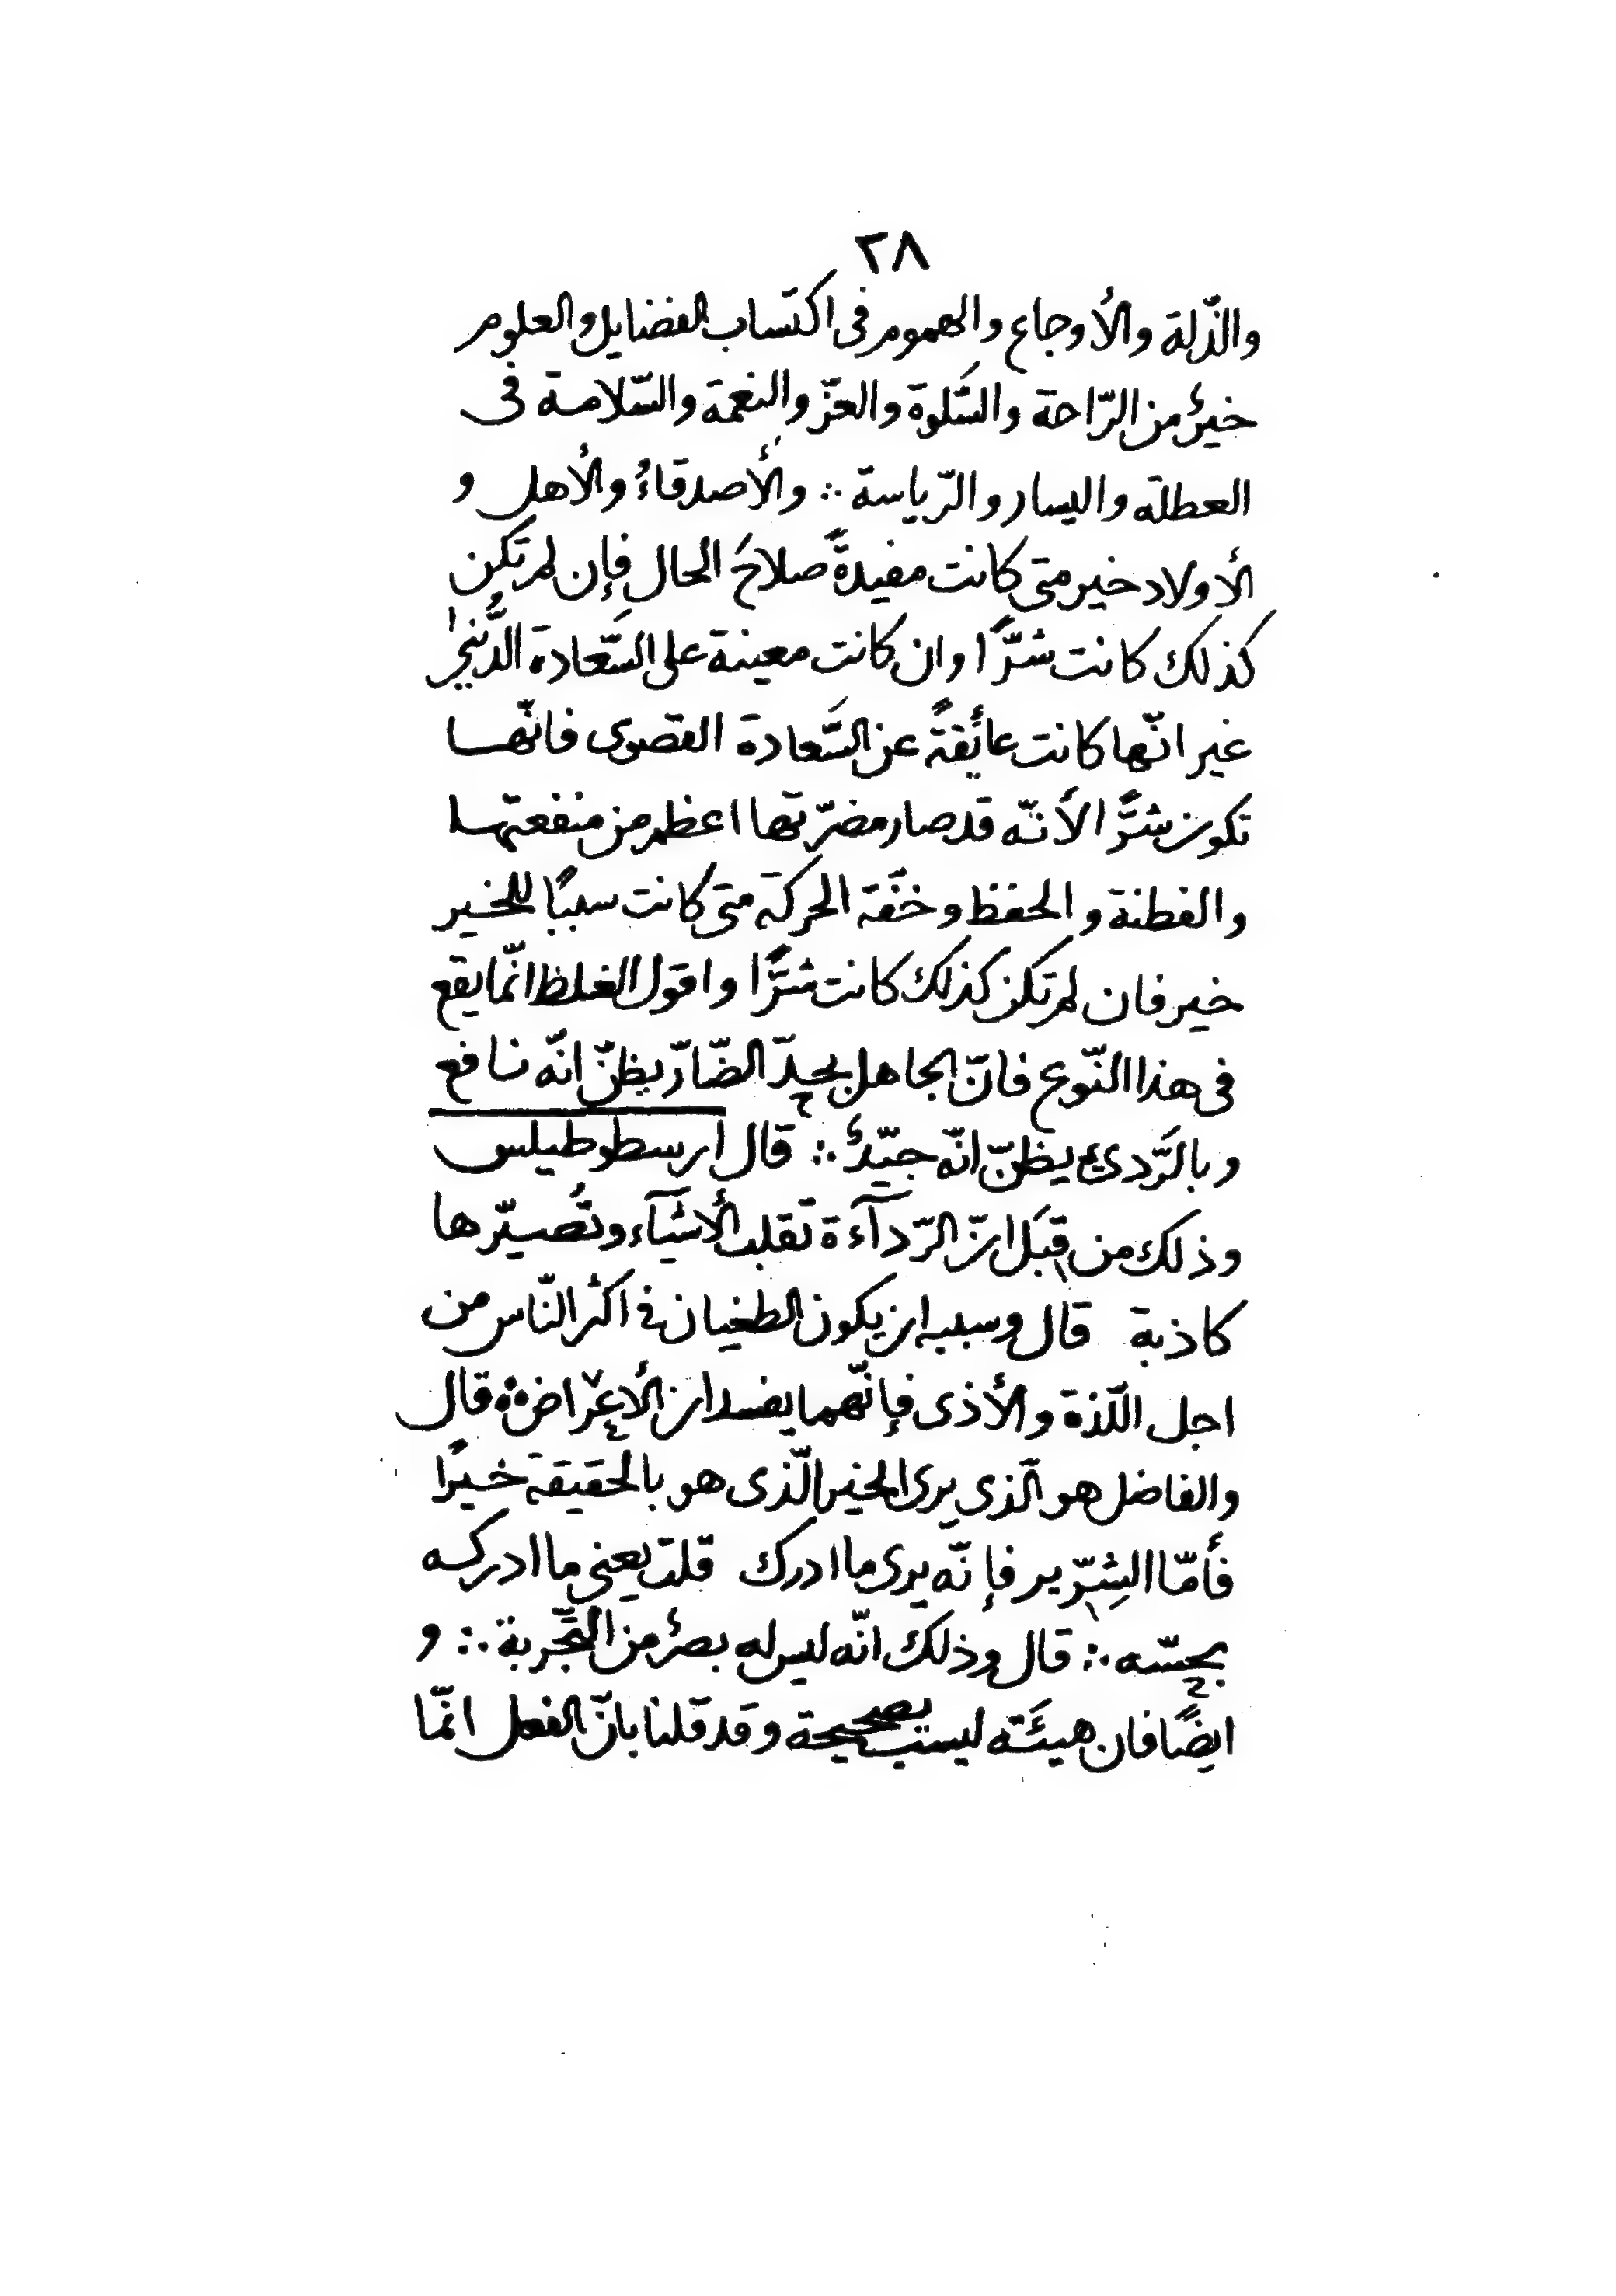 ٢٨
والذّلة والأوجاع والهموم فى اكتساب الفضايل والعلوم
خيرٌ من الرّاحة والسّلوة والعزّ والنعمة والسّلامة فى
العطلة واليسار والرّياسة ∴ والأصدقاءُ والأهل و
الأولاد خير متى كانت مفيدةً صلاحَ الحال فإن لم تكن
كذلك كانت شرًّا وان كانت معينة على السّعادة الدُّنيا
غير انّها كانت عائقةً عن السّعادة القصوى فانّها
تكون شرًّا لأنّه قد صار مضرّتها اعظم من منفعتها
والفطنة والحفظ وخفّة الحركة متى كانت سببًا للخير
خير فان لم تكن كذلك كانت شرًّا واقول الغلط انّما يقع
فى هذا النّوع فانّ الجاهل بحدّ الضّارّ يظنّ انّه نافع
وبالرّدىء يظنّ انّه جيّدٌ ∴ قال ارسطوطيلس
وذلك من قِبَل انّ الرّدآءة تقلب الأشيآء وتُصيّرها
كاذبة قال وسببه ان يكون الطغيان فى اكثر النّاس من
اجل اللّذة والأذى فإنّهما يفسدان الأعراض ∴ قال
والفاضل هو الّذى يرى الخير الّذى هو بالحقيقة خيرًا
فأمّا الشِرّير فإنّه يرى ما ادرك قلت يعنى ما ادركه
بحسّه ∴ قال وذلك انّه ليس له بصرٌ من التّجربة ∴ و
ايضًا فان هيئَته ليست بصحيحة وقد قلنا بانّ الفعل انّما